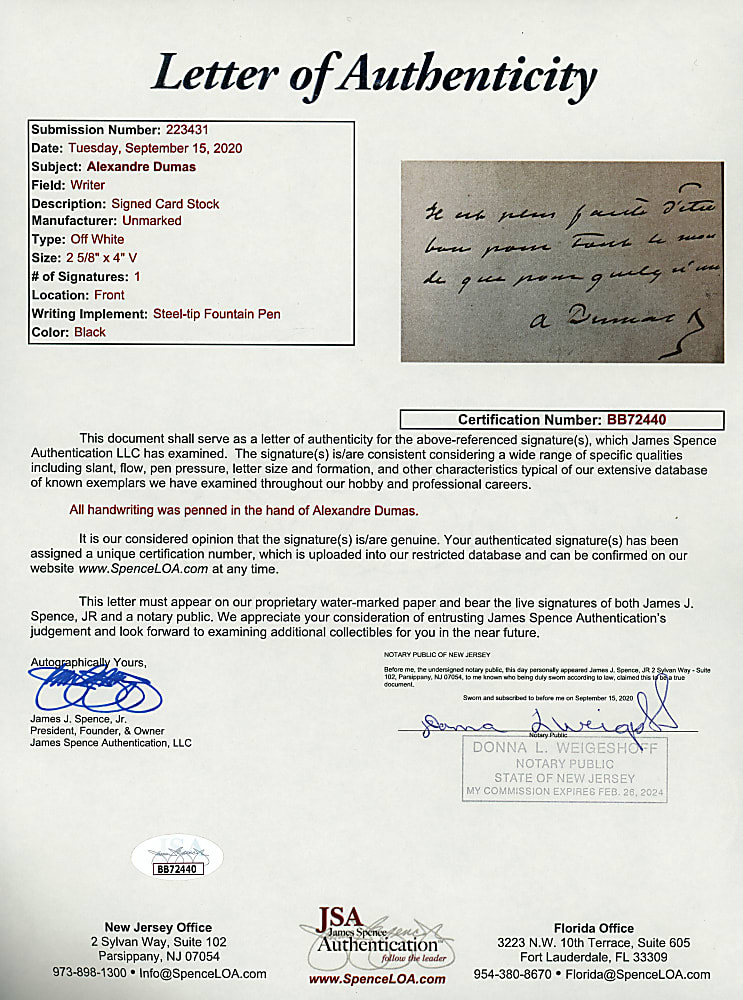 Letter of Authenticity
Submission Number: 223431
Date: Tuesday, September 15, 2020
Subject: Alexandre Dumas
Field: Writer
Description: Signed Card Stock
Manufacturer: Unmarked
Type: Off White
Size: 2 5/8" x 4" V
# of Signatures: 1
Location: Front
Writing Implement: Steel-tip Fountain Pen
Color: Black
Il est plus facile d'être
bon pour tout le mon
de que pour quelqu'un
A Dumas
Certification Number: BB72440
This document shall serve as a letter of authenticity for the above-referenced signature(s), which James Spence
Authentication LLC has examined. The signature(s) is/are consistent considering a wide range of specific qualities
including slant, flow, pen pressure, letter size and formation, and other characteristics typical of our extensive database
of known exemplars we have examined throughout our hobby and professional careers.
All handwriting was penned in the hand of Alexandre Dumas.
It is our considered opinion that the signature(s) is/are genuine. Your authenticated signature(s) has been
assigned a unique certification number, which is uploaded into our restricted database and can be confirmed on our
website www.SpenceLOA.com at any time.
This letter must appear on our proprietary water-marked paper and bear the live signatures of both James J.
Spence, JR and a notary public. We appreciate your consideration of entrusting James Spence Authentication's
judgement and look forward to examining additional collectibles for you in the near future.
Autographically Yours,
James J. Spence, Jr.
President, Founder, & Owner
James Spence Authentication, LLC
NOTARY PUBLIC OF NEW JERSEY
Before me, the undersigned notary public, this day personally appeared James J. Spence, JR 2 Sylvan Way - Suite
102, Parsippany, NJ 07054, to me known who being duly sworn according to law, claimed this to be a true
document.
Sworn and subscribed to before me on September 15, 2020
Donna L Weigeshoff
Notary Public
DONNA L. WEIGESHOFF
NOTARY PUBLIC
STATE OF NEW JERSEY
MY COMMISSION EXPIRES FEB. 26, 2024
BB72440
New Jersey Office
2 Sylvan Way, Suite 102
Parsippany, NJ 07054
973-898-1300 • Info@SpenceLOA.com
JSA
James Spence
Authentication
follow the leader
www.SpenceLOA.com
Florida Office
3223 N.W. 10th Terrace, Suite 605
Fort Lauderdale, FL 33309
954-380-8670 • Florida@SpenceLOA.com